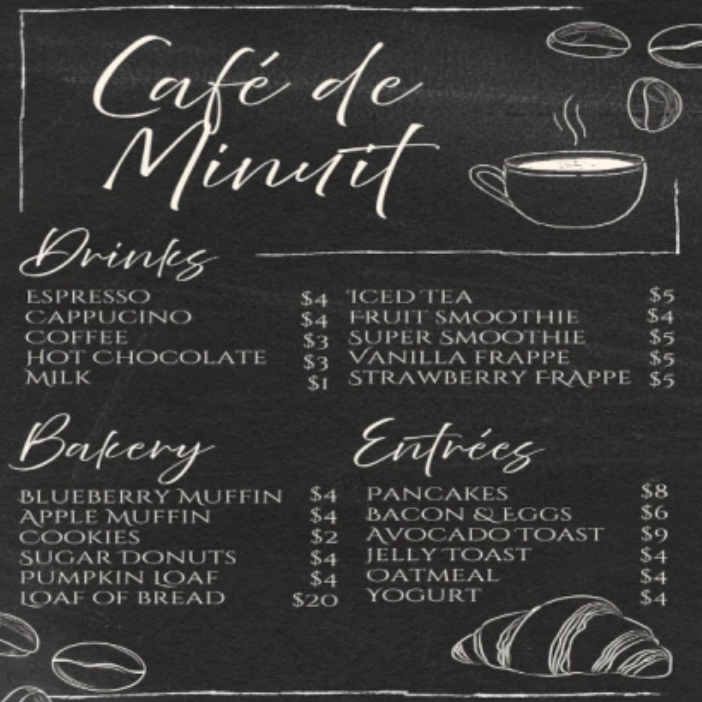 Café de
Minuit
Drinks
ESPRESSO $4
CAPPUCINO $4
COFFEE $3
HOT CHOCOLATE $3
MILK $1
ICED TEA $5
FRUIT SMOOTHIE $4
SUPER SMOOTHIE $5
VANILLA FRAPPE $5
STRAWBERRY FRAPPE $5
Bakery
BLUEBERRY MUFFIN $4
APPLE MUFFIN $4
COOKIES $2
SUGAR DONUTS $4
PUMPKIN LOAF $4
LOAF OF BREAD $20
Entrées
PANCAKES $8
BACON & EGGS $6
AVOCADO TOAST $9
JELLY TOAST $4
OATMEAL $4
YOGURT $4